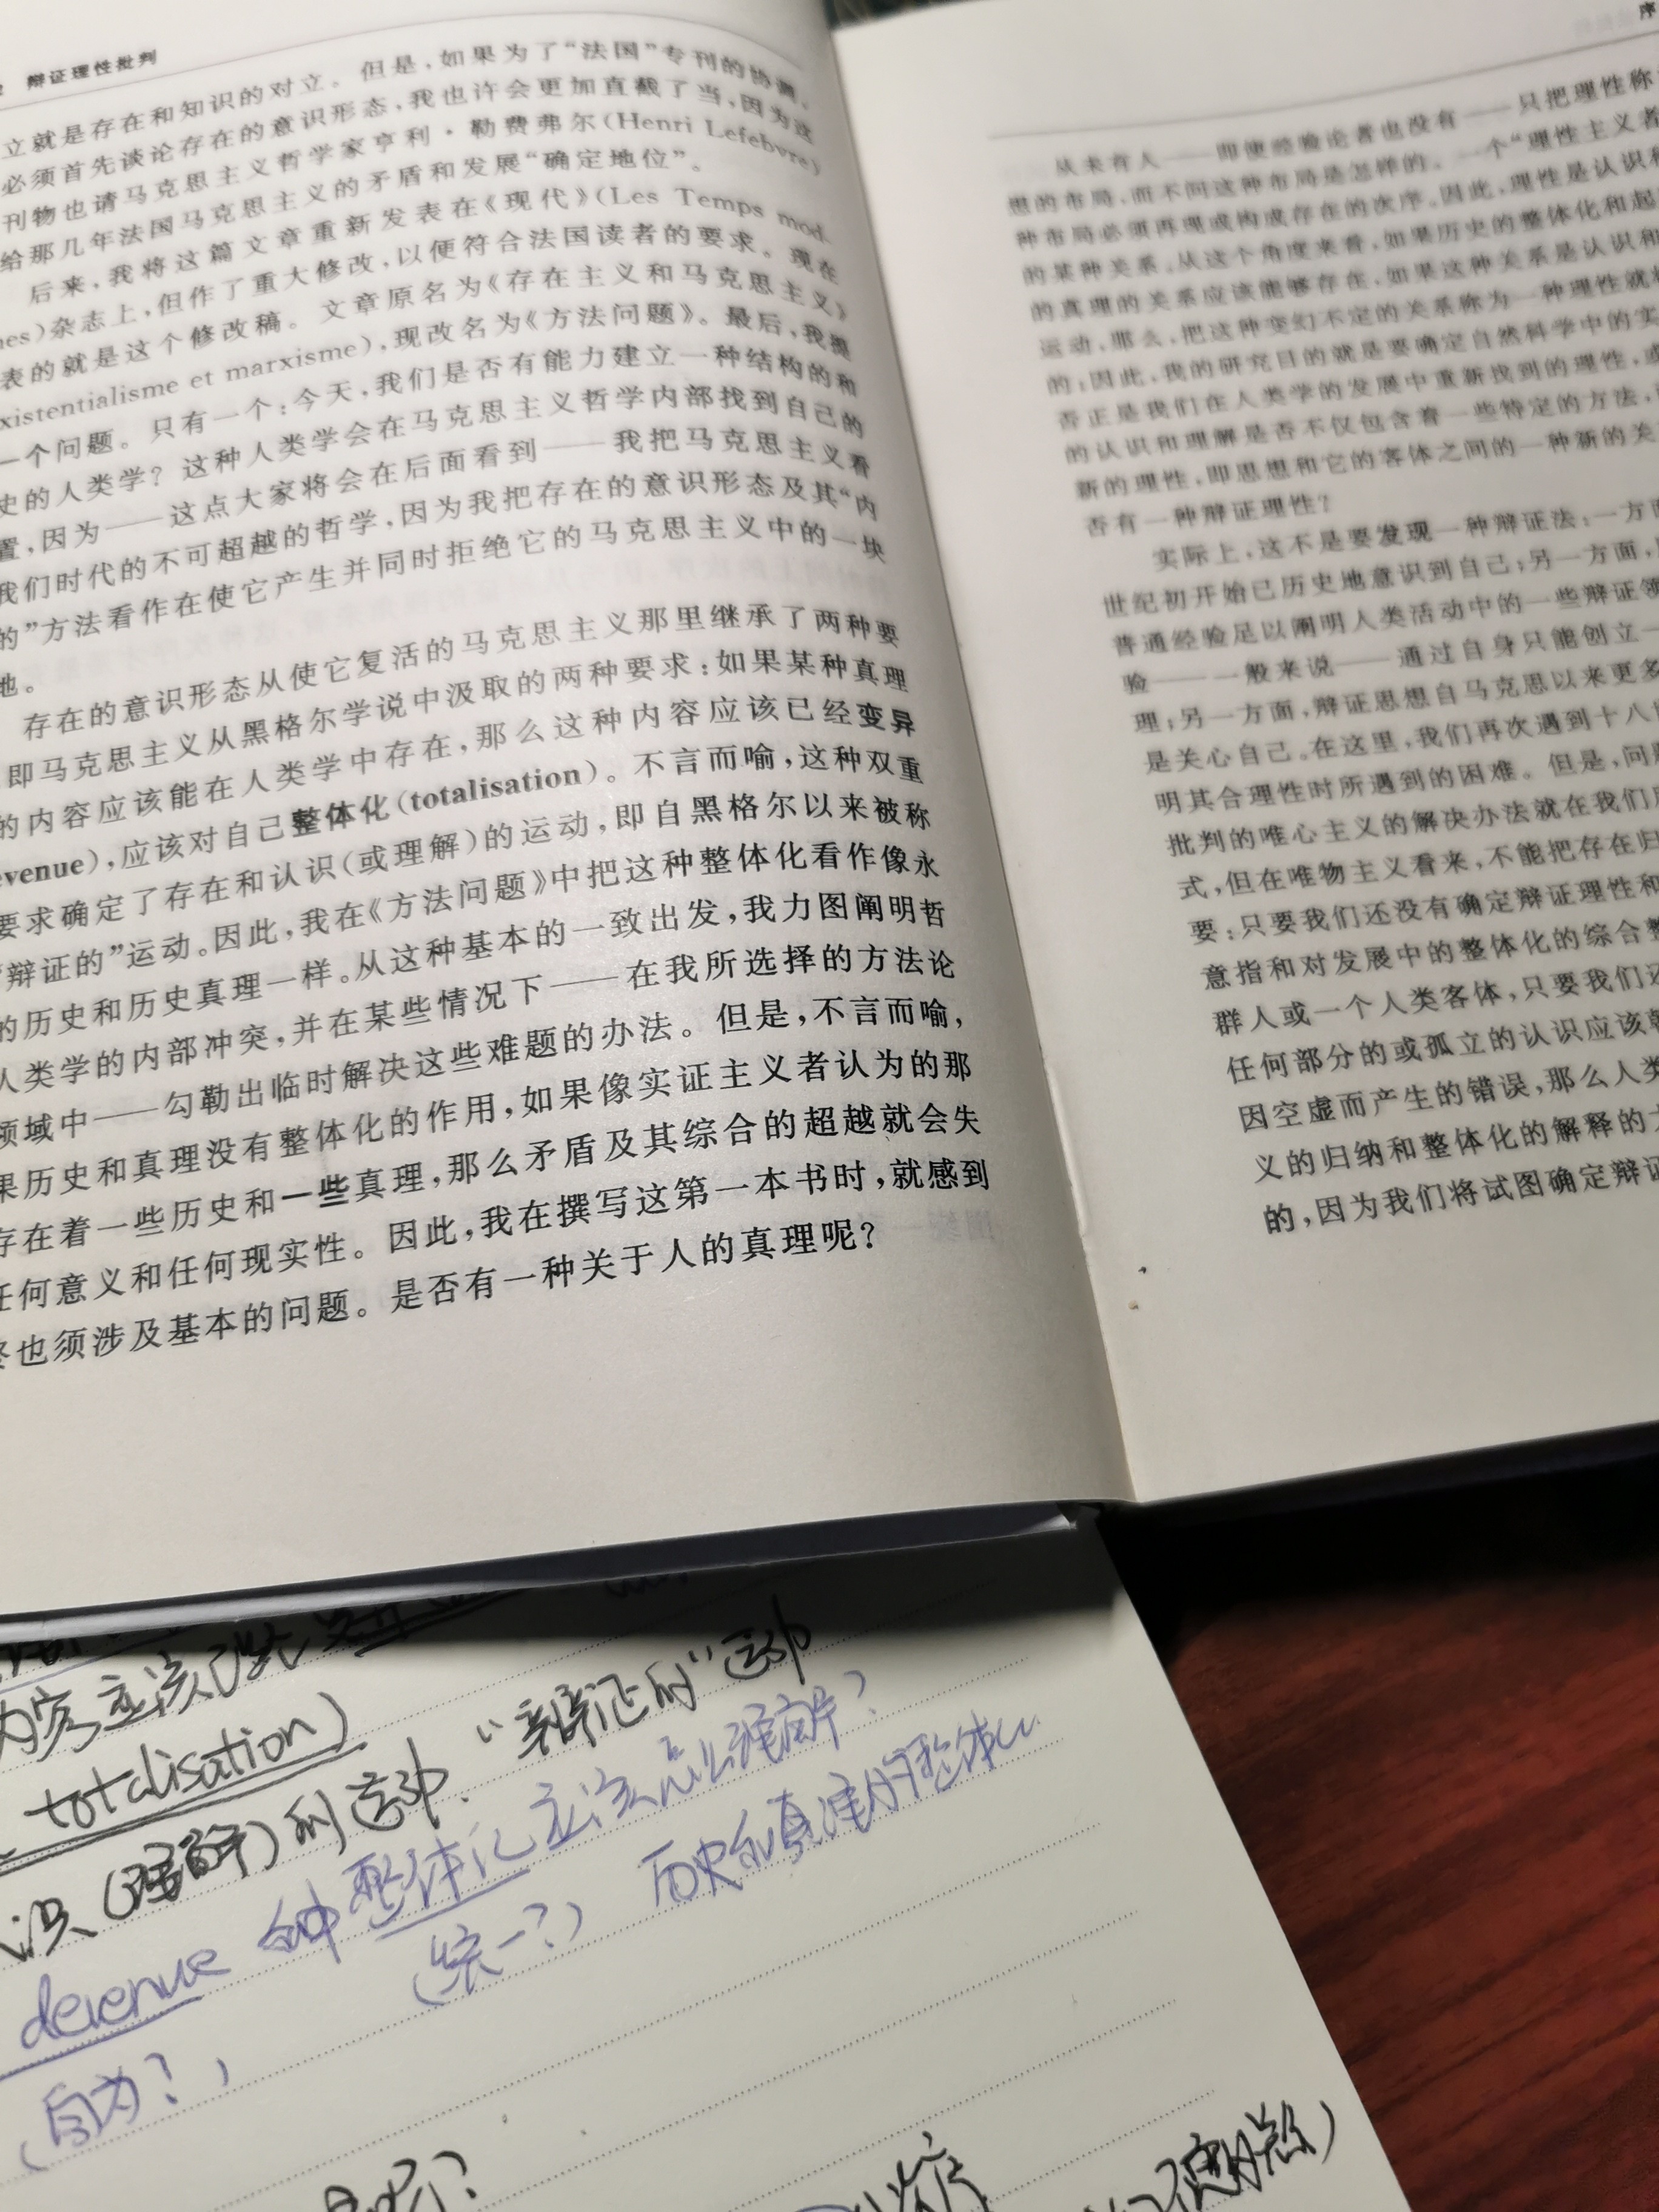 辩证理性批判
立就是存在和知识的对立。但是,如果为了“法国”专刊的协调,
必须首先谈论存在的意识形态,我也许会更加直截了当,因为这
刊物也请马克思主义哲学家亨利·勒费弗尔(Henri Lefebvre)
给那几年法国马克思主义的矛盾和发展“确定地位”。
后来,我将这篇文章重新发表在《现代》(Les Temps mod-
nes)杂志上,但作了重大修改,以便符合法国读者的要求。现在
表的就是这个修改稿。文章原名为《存在主义和马克思主义》
xistentialisme et marxisme),现改名为《方法问题》。最后,我提
一个问题。只有一个:今天,我们是否有能力建立一种结构的和
史的人类学?这种人类学会在马克思主义哲学内部找到自己的
置,因为——这点大家将会在后面看到——我把马克思主义看
我们时代的不可超越的哲学,因为我把存在的意识形态及其“内
的”方法看作在使它产生并同时拒绝它的马克思主义中的一块
地。
存在的意识形态从使它复活的马克思主义那里继承了两种要
即马克思主义从黑格尔学说中汲取的两种要求:如果某种真理
的内容应该能在人类学中存在,那么这种内容应该已经变异
evenue),应该对自己整体化(totalisation)。不言而喻,这种双重
要求确定了存在和认识(或理解)的运动,即自黑格尔以来被称
“辩证的”运动。因此,我在《方法问题》中把这种整体化看作像永
的历史和历史真理一样。从这种基本的一致出发,我力图阐明哲
人类学的内部冲突,并在某些情况下——在我所选择的方法论
领域中——勾勒出临时解决这些难题的办法。但是,不言而喻,
果历史和真理没有整体化的作用,如果像实证主义者认为的那
存在着一些历史和一些真理,那么矛盾及其综合的超越就会失
任何意义和任何现实性。因此,我在撰写这第一本书时,就感到
终也须涉及基本的问题。是否有一种关于人的真理呢?
序
从来有人——即使经验论者也没有——只把理性称
想的布局,而不问这种布局是怎样的。一个“理性主义者
种布局必须再现或构成存在的次序。因此,理性是认识和
的某种关系。从这个角度来看,如果历史的整体化和起
的真理的关系应该能够存在,如果这种关系是认识和
运动,那么,把这种变幻不定的关系称为一种理性就
的;因此,我的研究目的就是要确定自然科学中的实
否正是我们在人类学的发展中重新找到的理性,或
的认识和理解是否不仅包含着一些特定的方法,
新的理性,即思想和它的客体之间的一种新的关
否有一种辩证理性?
实际上,这不是要发现一种辩证法:一方面
世纪初开始已历史地意识到自己;另一方面,
普通经验足以阐明人类活动中的一些辩证领
验——一般来说——通过自身只能创立一
理;另一方面,辩证思想自马克思以来更多
是关心自己。在这里,我们再次遇到十八
明其合理性时所遇到的困难。但是,问
批判的唯心主义的解决办法就在我们
式,但在唯物主义看来,不能把存在归
要:只要我们还没有确定辩证理性和
意指和对发展中的整体化的综合整
群人或一个人类客体,只要我们还
任何部分的或孤立的认识应该
因空虚而产生的错误,那么人类
义的归纳和整体化的解释的
的,因为我们将试图确定辩证
内容应该已经变异
totalisation)
识(理解)的运动.“辩证的”运动
devenue 和整体化应该怎么理解?
(自为?) (统一?) 历史和真理的整体化